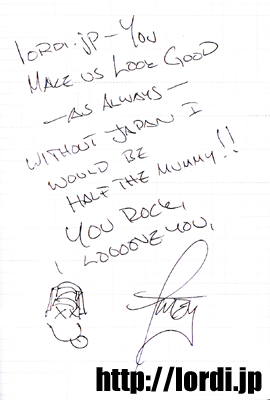 lordi.jp - You
Make us Look Good
- as always -
without Japan I
would be
half the mummy!!
You Rock,
I loooove you,
http://lordi.jp